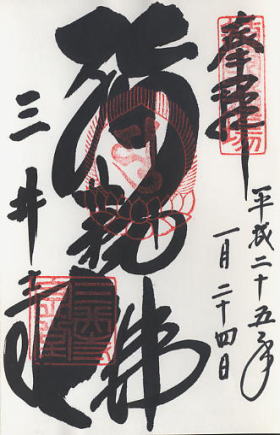 奉拝
平成二十五年
一月二十四日
弥勒佛
三井寺